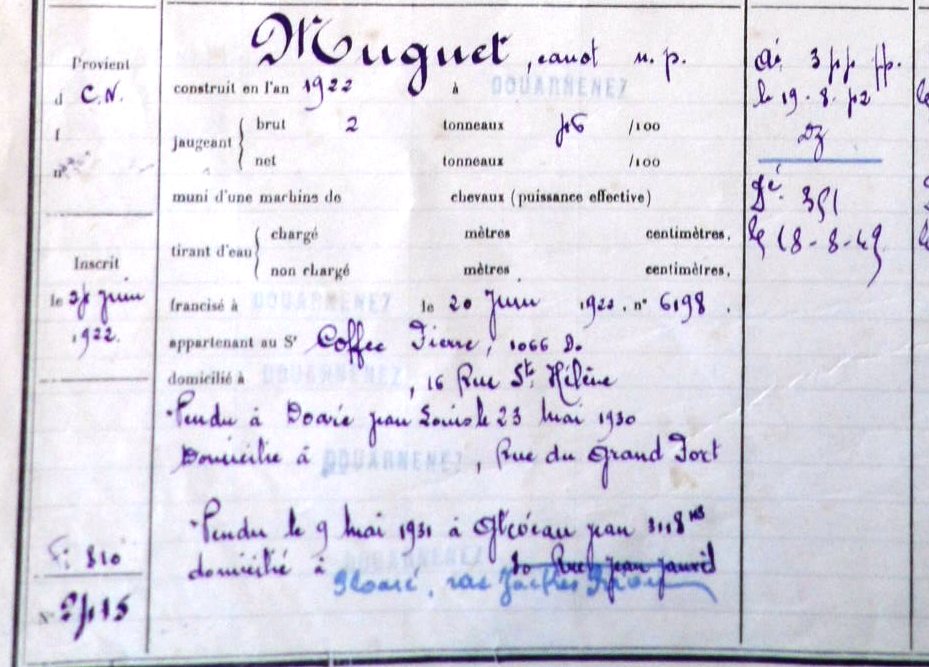 Provient
d C.N.
f
n°
Inscrit
le Juin
1922.
F: 810
N°
Muguet, canot n. p.
construit en l'an 1922 à DOUARNENEZ
jaugeant { brut 2 tonneaux 76 /100
net tonneaux /100
muni d'une machine de chevaux (puissance effective)
tirant d'eau { chargé mètres centimètres.
non chargé mètres centimètres.
francisé à DOUARNENEZ le 20 Juin 1922. n° 6198.
appartenant au Sr Coffec Pierre, 1066 D.
domicilié à DOUARNENEZ, 16 Rue Ste Hélène
Vendu à Doaré jean Louis le 23 Mai 1930
Domicilié à DOUARNENEZ, Rue du Grand Port
Vendu le 9 Mai 1931 à jean 3118
domicilié à DOUARNENEZ 10 Rue jean jaurès
Ploaré, rue
le 19.8.
Dz
Dé: 351
le 18-8-49